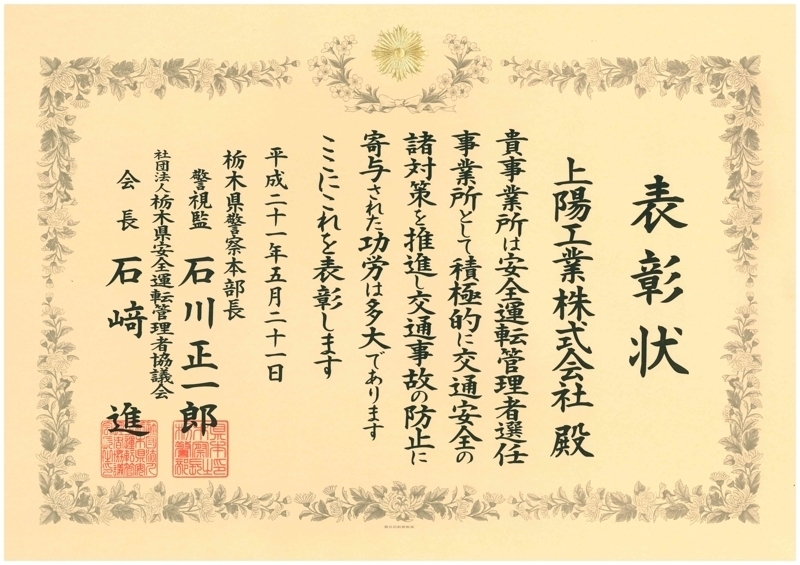 表彰状
上陽工業株式会社 殿
貴事業所は安全運転管理者選任
事業所として積極的に交通安全の
諸対策を推進し交通事故の防止に
寄与された功労は多大であります
ここにこれを表彰します
平成二十一年五月二十一日
栃木県警察本部長
警視監 石川正一郎
社団法人栃木県安全運転管理者協議会
会長 石﨑 進